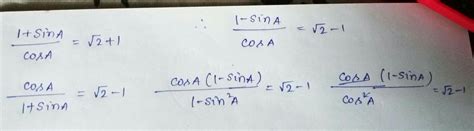 (1+SinA)/CosA = √2+1 ∴ (1-SinA)/CosA = √2-1
CosA/(1+SinA) = √2-1 CosA(1-SinA)/(1-Sin²A) = √2-1 CosA(1-SinA)/Cos²A = √2-1